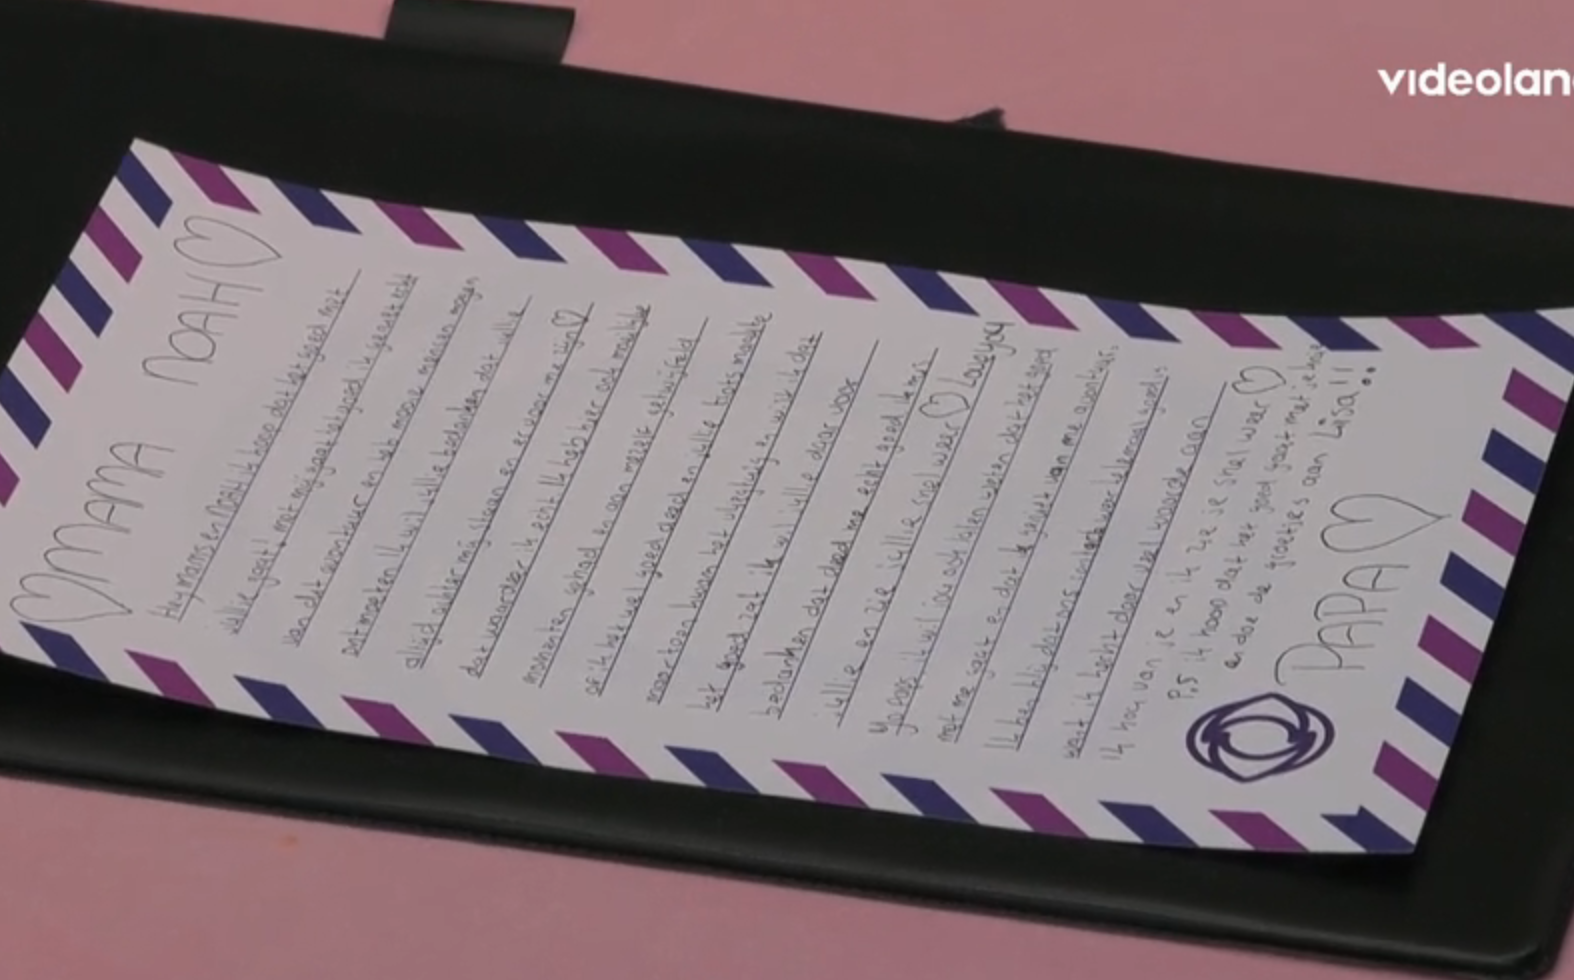 videolan
MAMA NOAH
Hey mams en NOAH ik hoop dat het goed met
jullie gaat! met mij gaat het goed ik geniet echt
van dit avontuur en heb mooie mensen mogen
ontmoeten ik wil jullie bedanken dat jullie
altijd achter mij staan en er voor me zijn
dat waardeer ik echt ik heb hier ook moeilijke
momenten gehad en aan mezelf getwijfeld
of ik het wel goed deed en jullie trots maakte
maar toen kwam het en wist ik dat
het goed zat ik wil jullie daar voor
bedanken dat deed me echt goed
jullie en zie jullie snel weer Love you
Yo paps ik wil jou ook laten weten dat het goed
met me gaat en dat ik geniet van me avontuur.
Ik ben blij dat ons contact weer helemaal goed is
want ik hecht daar veel waarde aan
Ik hou van je en ik zie je snel weer
P.S ik hoop dat het goed gaat met je
en doe de groetjes aan Lisa!!
PAPA